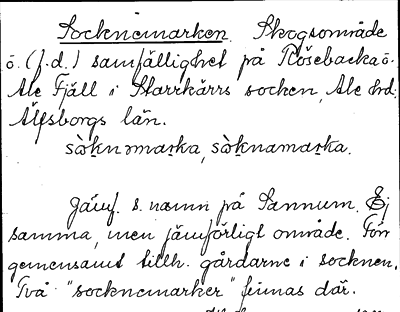 Socknemarken. Skogsområde
o. (f.d.) samfällighet på Rösebacka o.
Ale Fjäll i Starrkärrs socken, Ale hd.
Älfsborgs län.
sòknəmarka, sòknamarka.
Jämf. s. namn på Sannum. Ej
samma, men jämförligt område. Förr
gemensamt tillh. gårdarne i socknen.
Två "socknemarker" finnas där.